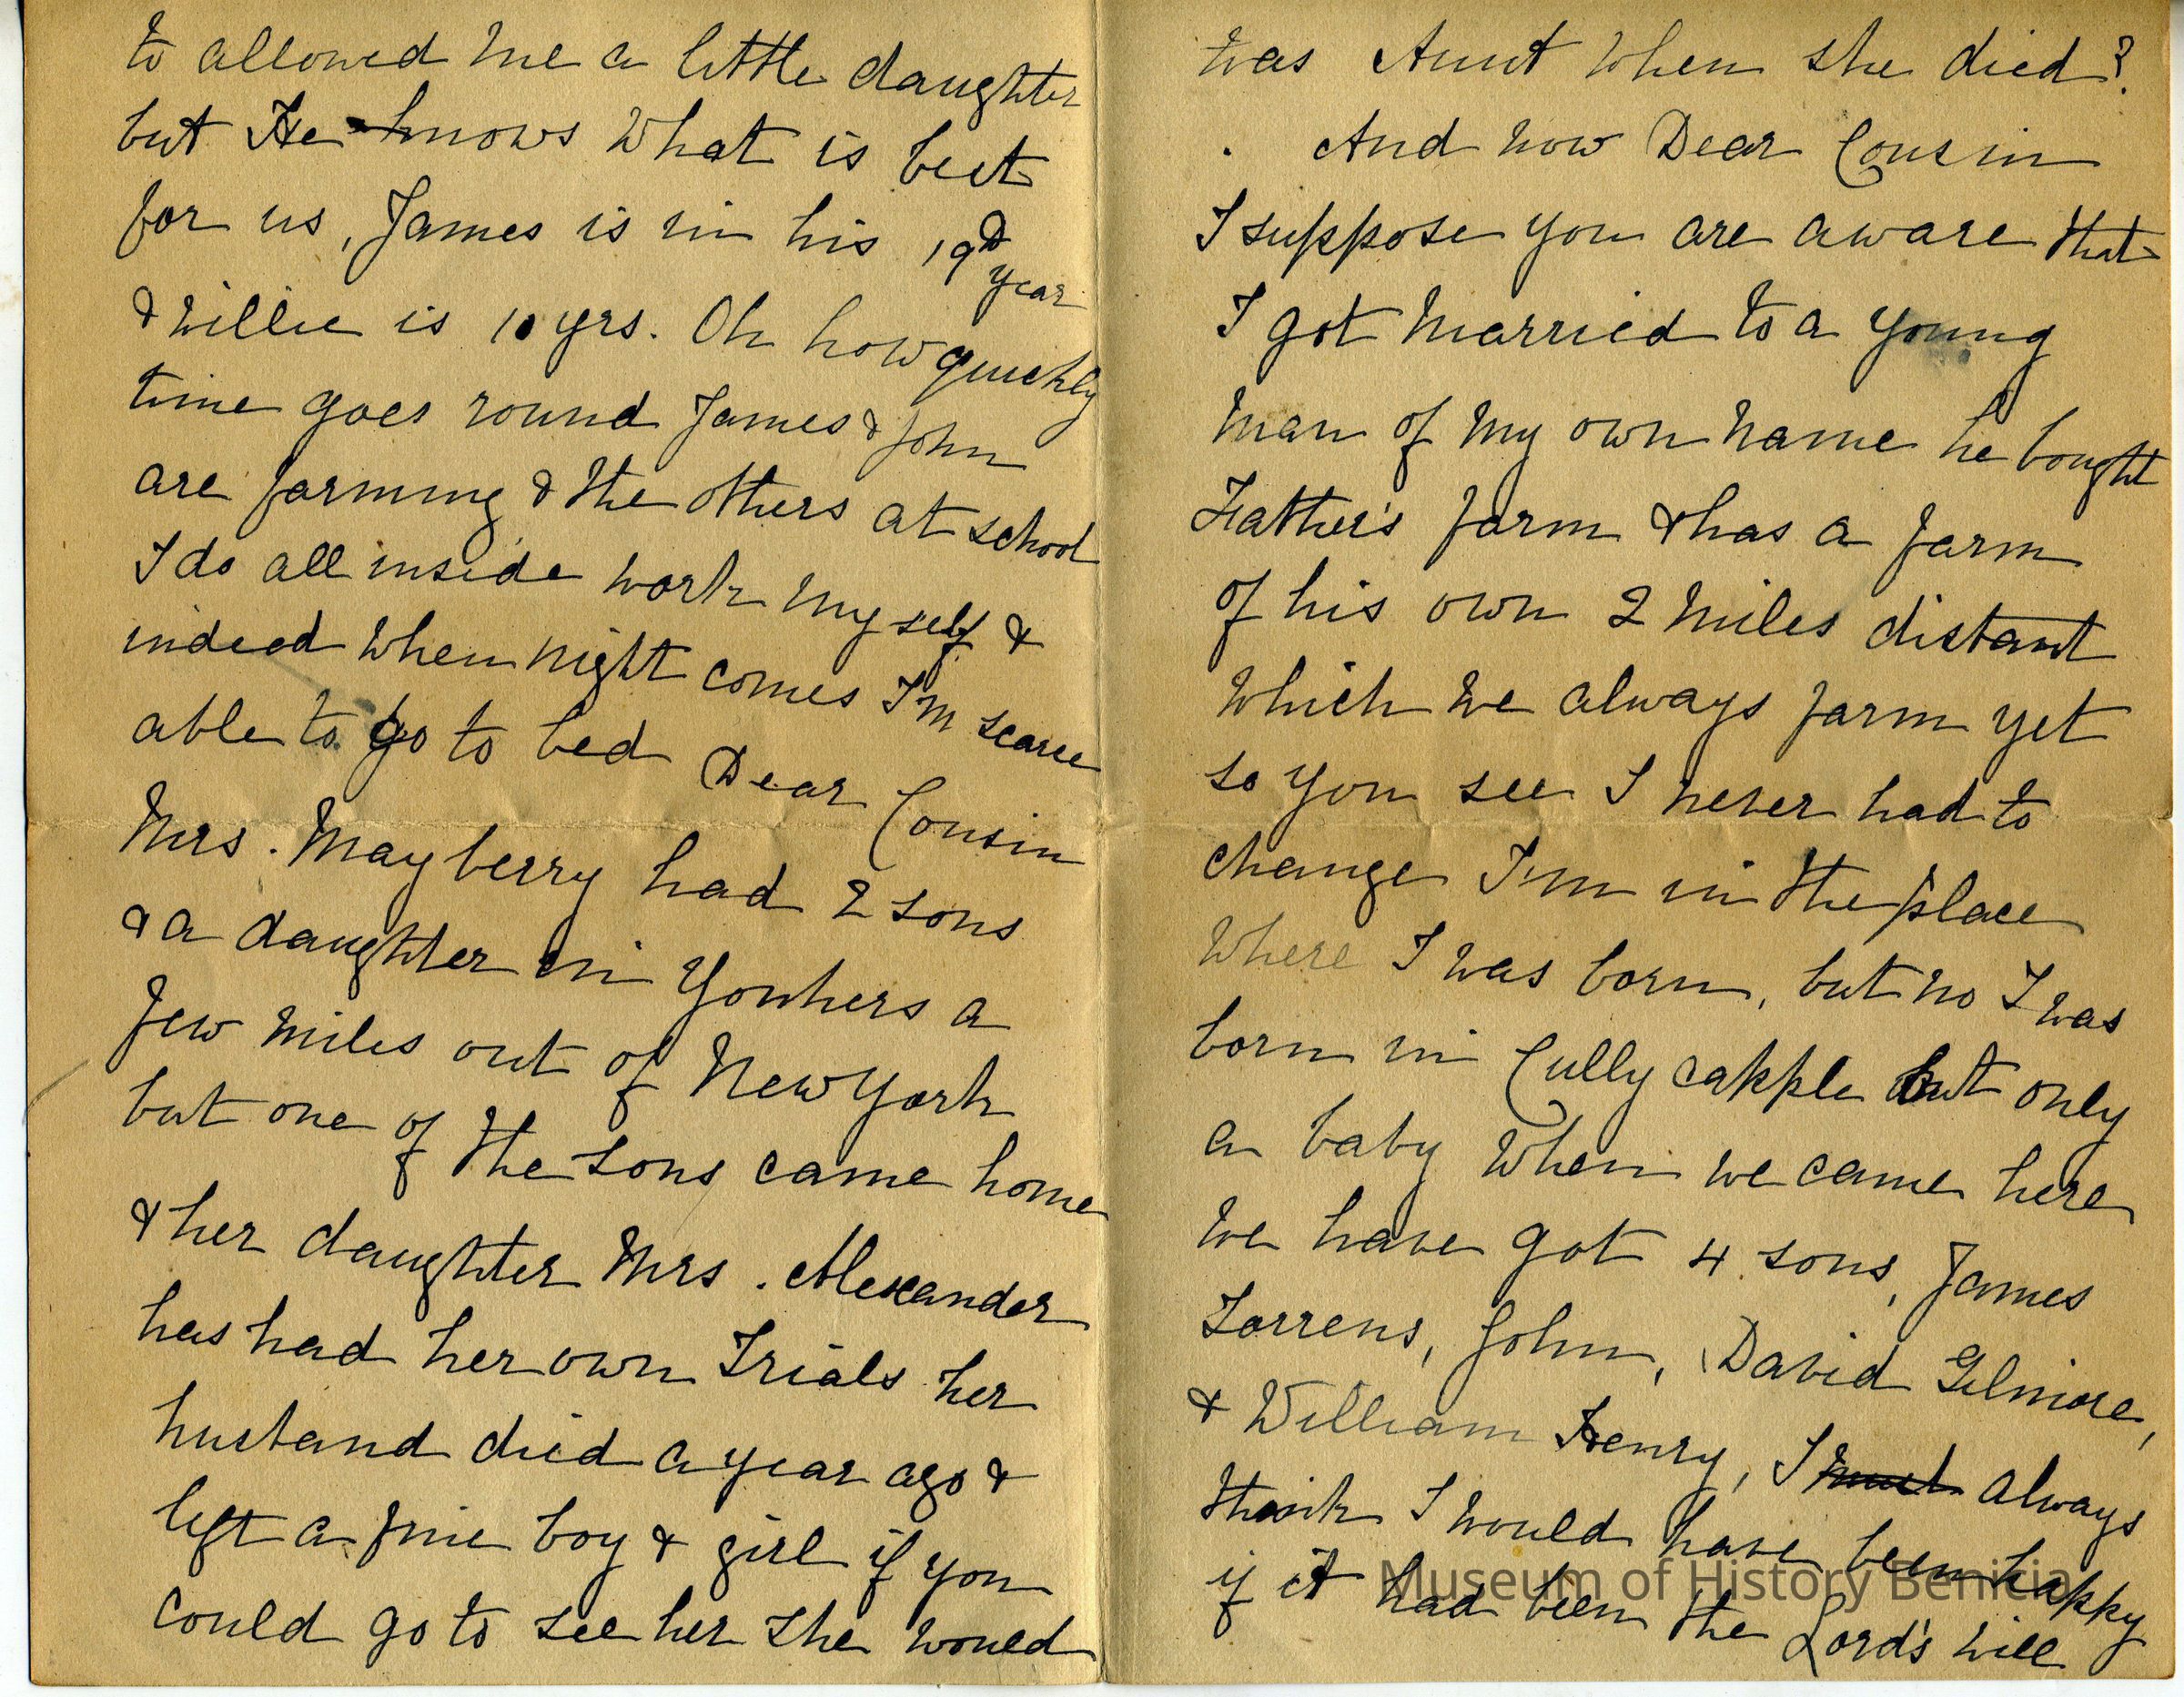 to allowed me a little daughter
but He knows What is best
for us, James is in his 19th year
& Willie is 10 yrs. Oh how quickly
time goes round James & John
are farming & the others at school
I do all inside work my self &
indeed when night comes I'm scarce
able to go to bed Dear Cousin
Mrs. Mayberry had 2 sons
& a daughter in Yonkers a
few miles out of New York
but one of the sons came home
& her daughter Mrs. Alexander
has had her own Trials her
husband died a year ago &
left a fine boy & girl if you
could go to see her she would
was Aunt when she died?
And now Dear Cousin
I suppose you are aware that
I got married to a young
man of my own name he bought
Father's farm & has a farm
of his own 2 miles distant
which we always farm yet
so you see I never had to
change I'm in the place
where I was born, but no I was
born in Cully capple but only
a baby when we came here
we have got 4 sons, James
Torrens, John, David Gilmore,
& William Henry, I must always
think I would have been happy
if it had been the Lord's will
Museum of History Benicia